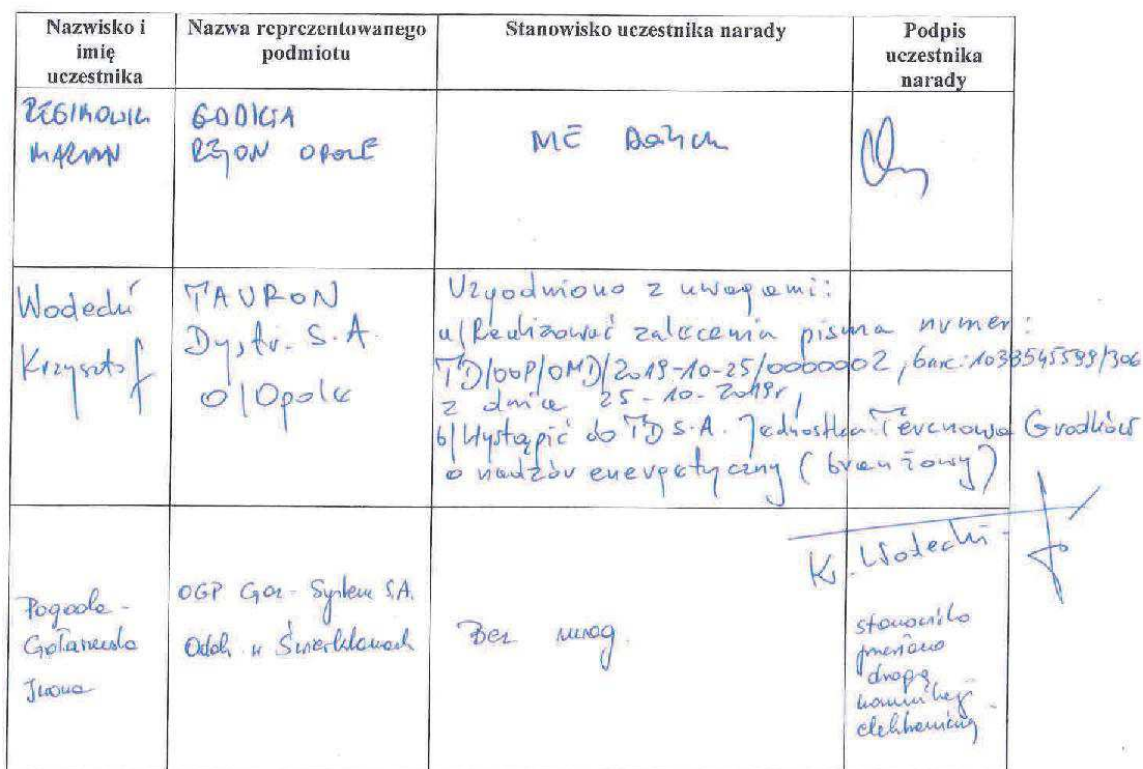 Nazwisko i
imię
uczestnika
Nazwa reprezentowanego
podmiotu
Stanowisko uczestnika narady
Podpis
uczestnika
narady
MARIAN
REJON OPOLE
Wodecki
Krzysztof
TAURON
Dystr. S.A.
O/Opole
Uzgodniono z uwagami:
a/ Realizować zalecenia pisma numer:
TD/OOP/OMD/2019-10-25/0000002,
z dnia 25-10-2019r,
b/ Wystąpić do TD S.A. Jednostka Terenowa Grodków
o nadzór energetyczny (branżowy)
K. Wodecki
Pogoda-
Iwona
OGP Gaz-System S.A.
Oddz. w Świerklanach
Bez uwag.
stanowisko
drogą